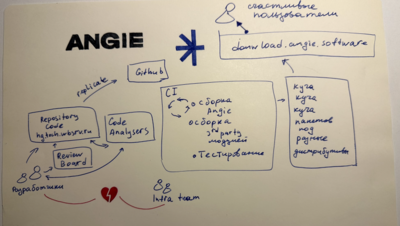 счастливые
пользователи
ANGIE
download.angie.software
replicate
Github
CI
сборка
Angie
сборка
3rd party
модулей
Тестирование
куча
куча
куча
пакетов
под
разные
дистрибутивы
Repository
code
Code
Analysers
Review
Board
Разработчики
Infra team